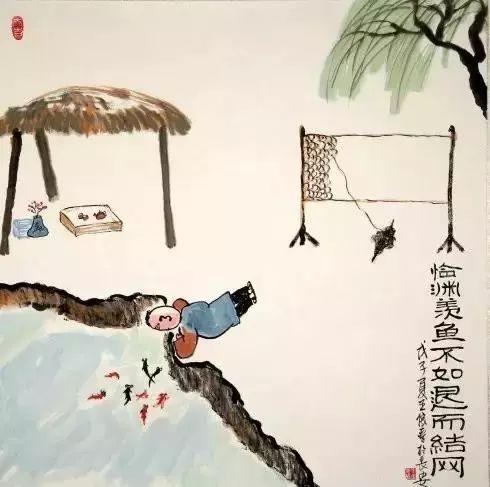 临渊羡鱼不如退而結网
戊子夏王於长安